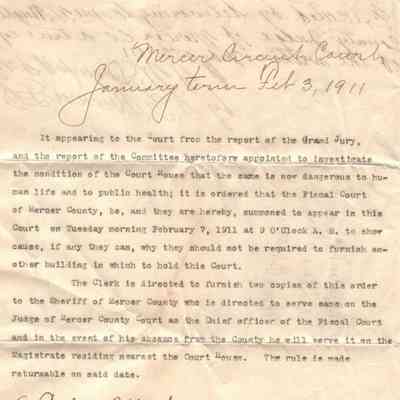 Mercer Circuit Court
January term Feb 3, 1911
It appearing to the Court from the report of the Grand Jury,
and the report of the Committee heretofore appointed to investicate
the condition of the Court House that the same is now dangerous to hu-
man life and to public health; it is ordered that the Fiscal Court
of Mercer County, be, and they are hereby, summoned to appear in this
Court on Tuesday morning February 7, 1911 at 9 O'Clock A. M. to show
cause, if any they can, why they should not be required to furnish an-
other building in which to hold this Court.
The Clerk is directed to furnish two copies of this order
to the Sheriff of Mercer County who is directed to serve same on the
Judge of Mercer County Court as the Chief officer of the Fiscal Court
and in the event of his absence from the County he will serve it on the
Magistrate residing nearest the Court House. The rule is made
returnable on said date.